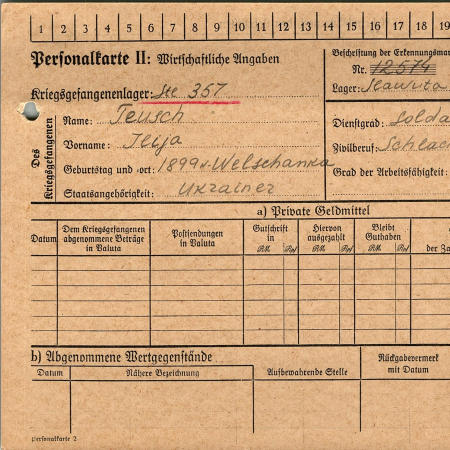 1 2 3 4 5 6 7 8 9 10 11 12 13 14 15 16 17 18 19
Personalkarte II: Wirtschaftliche Angaben
Beschriftung der Erkennungsmar
Nr. 12574
Kriegsgefangenenlager: Ste 357
Lager: Slawuta
Des Kriegsgefangenen
Name: Teusch
Dienstgrad: Solda
Vorname: Ilija
Zivilberuf: Schlach
Geburtstag und -ort: 1899 Welschanka
Grad der Arbeitsfähigkeit:
Staatsangehörigkeit: Ukrainer
a) Private Geldmittel
Datum
Dem Kriegsgefangenen abgenommene Beträge in Valuta
Postsendungen in Valuta
Gutschrift in
RM. Rpf
Hiervon ausgezahlt
RM. Rpf
Bleibt Guthaben
RM. Rpf
der Za
b) Abgenommene Wertgegenstände
Datum
Nähere Bezeichnung
Aufbewahrende Stelle
Rückgabevermerk mit Datum
Personalkarte 2